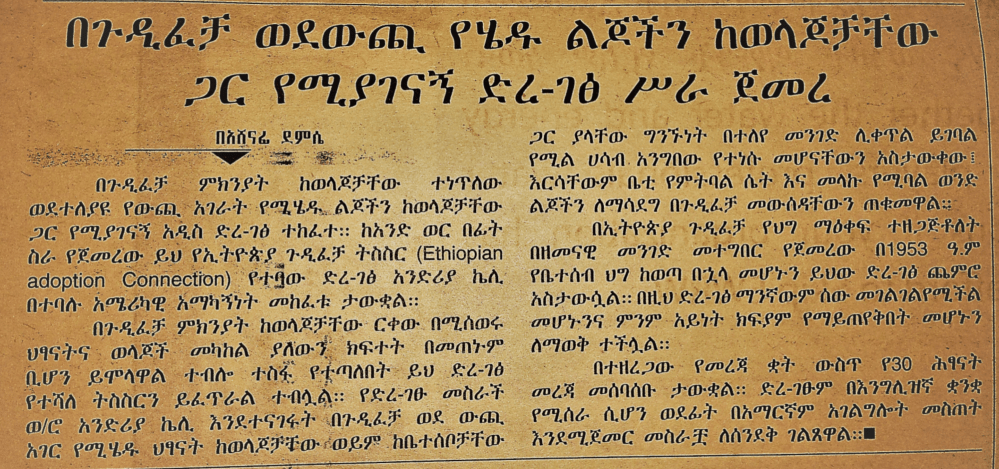 በጉዲፈቻ ወደውጪ የሄዱ ልጆችን ከወላጆቻቸው
ጋር የሚያገናኝ ድረ-ገፅ ሥራ ጀመረ
በአሸናፊ ደምሴ
በጉዲፈቻ ምክንያት ከወላጆቻቸው ተነጥለው
ወደተለያዩ የውጪ አገራት የሚሄዱ ልጆችን ከወላጆቻቸው
ጋር የሚያገናኝ አዲስ ድረ-ገፅ ተከፈተ። ከአንድ ወር በፊት
ስራ የጀመረው ይህ የኢትዮጵያ ጉዲፈቻ ትስስር (Ethiopian
adoption Connection) የተባው ድረ-ገፅ አንድሪያ ኬሊ
በተባሉ አሜሪካዊ አማካኝነት መከፈቱ ታውቋል።
በጉዲፈቻ ምክንያት ከወላጆቻቸው ርቀው በሚሰወሩ
ህፃናትና ወላጆች መካከል ያለውን ክፍተት በመጠኑም
ቢሆን ይሞላዋል ተብሎ ተስፋ የተጣለበት ይህ ድረ-ገፅ
የተሻለ ትስስርን ይፈጥራል ተብሏል። የድረ-ገፁ መስራች
ወ/ሮ አንድሪያ ኬሊ እንደተናገሩት በጉዲፈቻ ወደ ውጪ
አገር የሚሄዱ ህፃናት ከወላጆቻቸው ወይም ከቤተሰቦቻቸው
ጋር ያላቸው ግንኙነት በተለየ መንገድ ሊቀጥል ይገባል
የሚል ሀሳብ አንግበው የተነሱ መሆናቸውን አስታውቀው፤
እርሳቸውም ቤቲ የምትባል ሴት እና መላኩ የሚባል ወንድ
ልጆችን ለማሳደግ በጉዲፈቻ መውሰዳቸውን ጠቁመዋል።
በኢትዮጵያ ጉዲፈቻ የህግ ማዕቀፍ ተዘጋጅቶለት
በዘመናዊ መንገድ መተግበር የጀመረው በ1953 ዓ.ም
የቤተሰብ ህግ ከወጣ በኋላ መሆኑን ይህው ድረ-ገፅ ጨምሮ
አስታውሷል። በዚህ ድረ-ገፅ ማንኛውም ሰው መገልገልየሚችል
መሆኑንና ምንም አይነት ክፍያም የማይጠየቅበት መሆኑን
ለማወቅ ተችሏል።
በተዘረጋው የመረጃ ቋት ውስጥ የ30 ሕፃናት
መረጃ መሰባሰቡ ታውቋል። ድረ-ገፁም በእንግሊዝኛ ቋንቋ
የሚሰራ ሲሆን ወደፊት በአማርኛም አገልግሎት መስጠት
እንደሚጀመር መስራቿ ለሰንደቅ ገልጸዋል።■